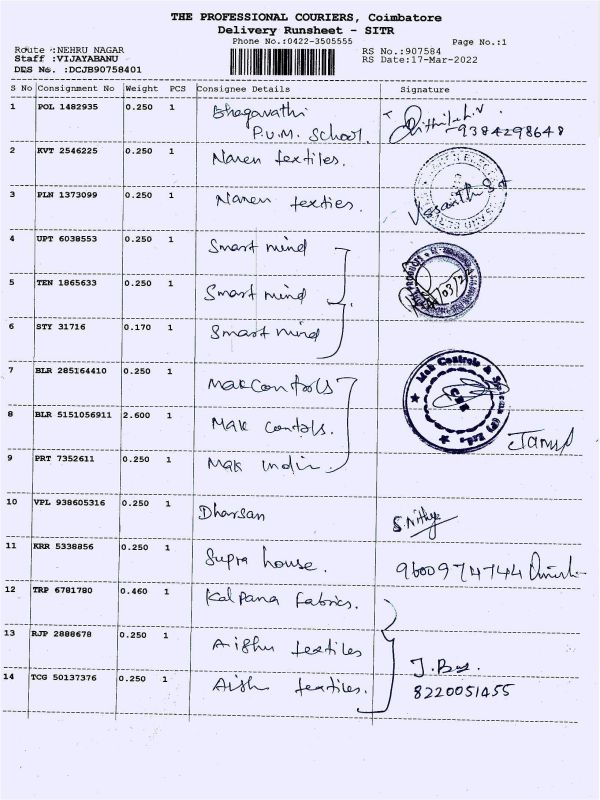 THE PROFESSIONAL COURIERS, Coimbatore
Delivery Runsheet - SITR
Phone No.:0422-3505555 Page No.:1
Route :NEHRU NAGAR RS No.:907584
Staff :VIJAYABANU RS Date:17-Mar-2022
DES No. :DCJB90758401
S No Consignment No Weight PCS Consignee Details Signature
1 POL 1482935 0.250 1 Bhagavathi
P.U.M. School. 9384298648
2 KVT 2546225 0.250 1 Naren textiles.
3 PLN 1373099 0.250 1 Naren texties. Vasanth
4 UPT 6038553 0.250 1 Smart mind
5 TEN 1865633 0.250 1 Smart mind
6 STY 31716 0.170 1 Smart mind
7 BLR 285164410 0.250 1 Mak Controls Mak Controls &
8 BLR 5151056911 2.600 1 Mak Contols.
9 PRT 7352611 0.250 1 Mak india.
10 VPL 938605316 0.250 1 Dharsan S. Nithya
11 KRR 5338856 0.250 1 Supra house. 9600974744
12 TRP 6781780 0.460 1 Kalpana Fabrics.
13 RJP 2888678 0.250 1 Aishu textiles
14 TCG 50137376 0.250 1 Aishu textiles. 8220051455